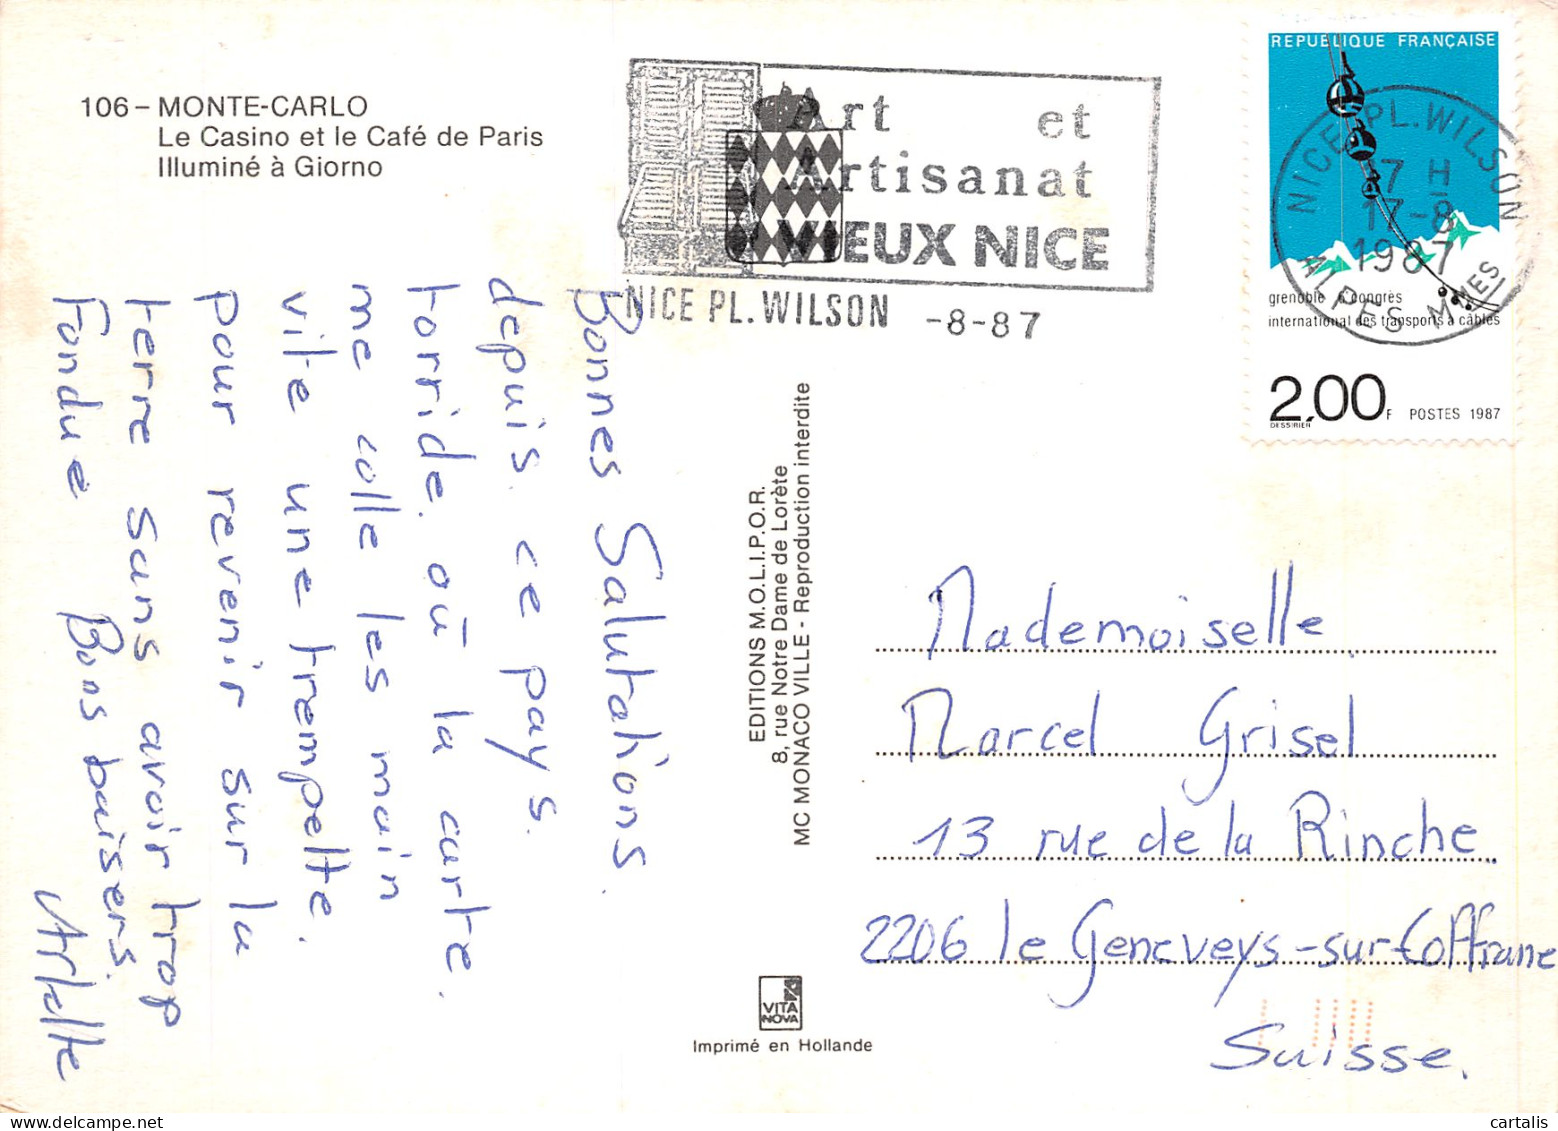 106 – MONTE-CARLO
Le Casino et le Café de Paris
Illuminé à Giorno
Art et
Artisanat
VIEUX NICE
NICE PL. WILSON -8-87
REPUBLIQUE FRANÇAISE
NICE PL. WILSON
17 H
17-8
1987
ALPES MMES
grenoble 6 congrès
international des transports à câbles
2,00F POSTES 1987
DESSIRIER
Bonnes Salutations.
depuis ce pays.
torride. où la carte.
me colle les main
vite une trempelte.
pour revenir sur la
terre sans avoir trop
Fondue Bons baisers.
Arlette
EDITIONS M.O.L.I.P.O.R.
8, rue Notre Dame de Lorète
MC MONACO VILLE - Reproduction interdite
VITA
NOVA
Imprimé en Hollande
Mademoiselle.
Marcel Grisel
13 rue de la Rinche.
2206 le Geneveys-sur-Coffrane
Suisse.
cartalis